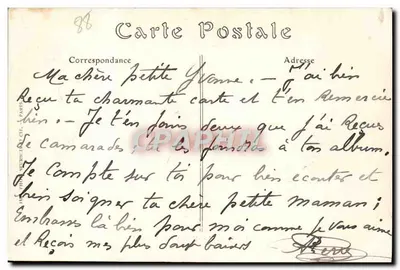 88
Carte Postale
Correspondance Adresse
Ma chère petite Yvonne. - J'ai bien
Reçu ta charmante carte et t'en Remercie
bien. - Je t'en joins deux que j'ai Reçues
de camarades les joindras à ton album.
Je compte sur toi pour bien écouter et
bien soigner ta chère petite maman ;
Embrasse là bien pour moi comme je vous aime
et Reçois mes plus doux baisers